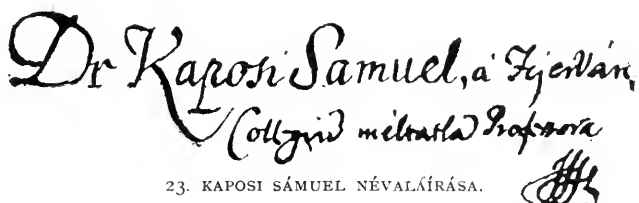 Dr Kaposi Samuel, á Fejervári
Collegiū méltatla Professora
23. KAPOSI SÁMUEL NÉVALÁÍRÁSA.